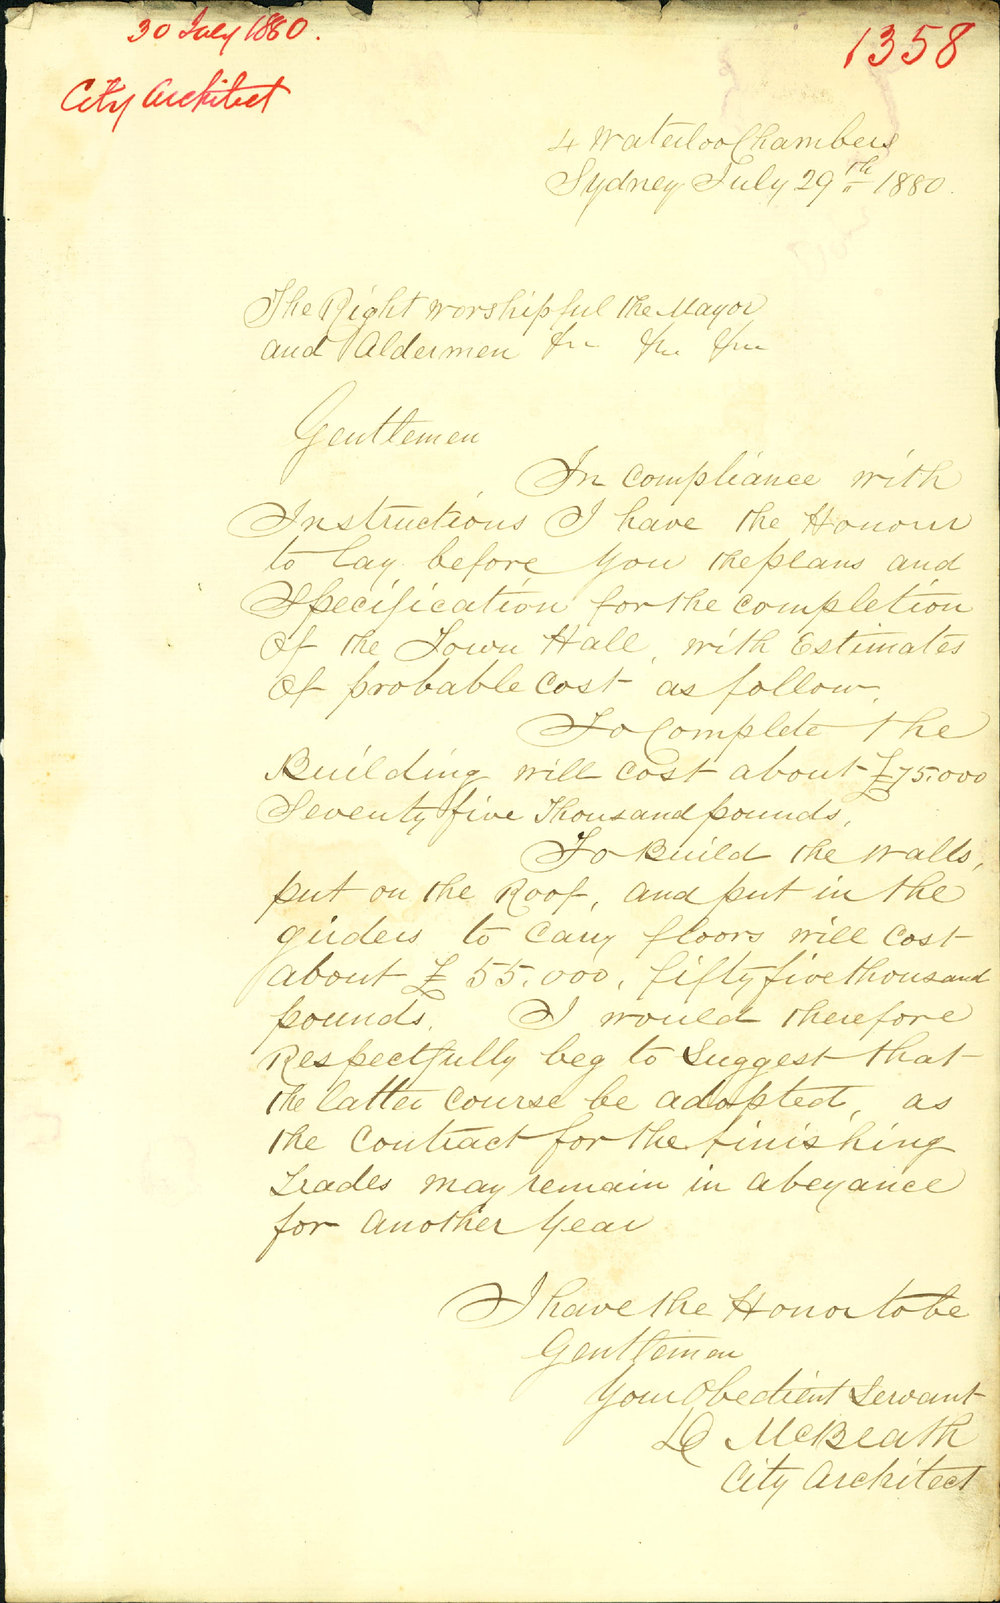 30 July 1880.
1358
City Architect
4 Waterloo Chambers
Sydney July 29th 1880.
The Right Worshipful the Mayor
and Aldermen &c &c &c
Gentlemen
In Compliance with
Instructions I have the Honour
to lay before you the plans and
Specification for the Completion
of the Town Hall, with Estimates
of probable Cost as follow.
To Complete the
Building will Cost about £75.000
Seventy five Thousand pounds.
To Build the Walls,
put on the Roof, and put in the
girders to Carry floors will Cost
about £55.000, fifty five thousand
pounds. I would therefore
Respectfully beg to Suggest that
the latter Course be adopted, as
the Contract for the finishing
Trades may remain in abeyance
for another Year
I have the Honor to be
Gentlemen
Your Obedient Servant
D McBeath
City Architect